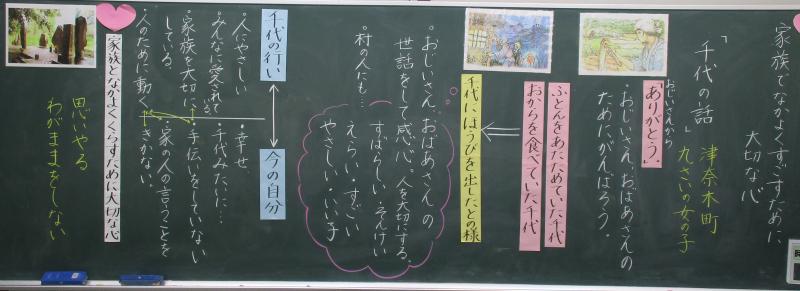 家族でなかよくすごすために
大切な心
「千代の話」
津奈木町
九さいの女の子
おじいさんから
「ありがとう。」
・おじいさん、おばあさんの
ためにがんばろう。
ふとんをあたためていた千代
おからを食べていた千代
千代にほうびを出したとの様
・おじいさん、おばあさんの
世話をして感心。人を大切にする。
すばらしい・そんけい
・村の人にも…
えらい・すごい
やさしい・いい子
千代の行い
今の自分
・人にやさしい
・みんなに愛されている
・家族を大切に
している。
・人のために動く
・幸せ
・千代みたいに…
・手伝いをしていない
・家の人の言うことを
きかない。
家族となかよくくらすために大切な心
思いやる
わがままをしない